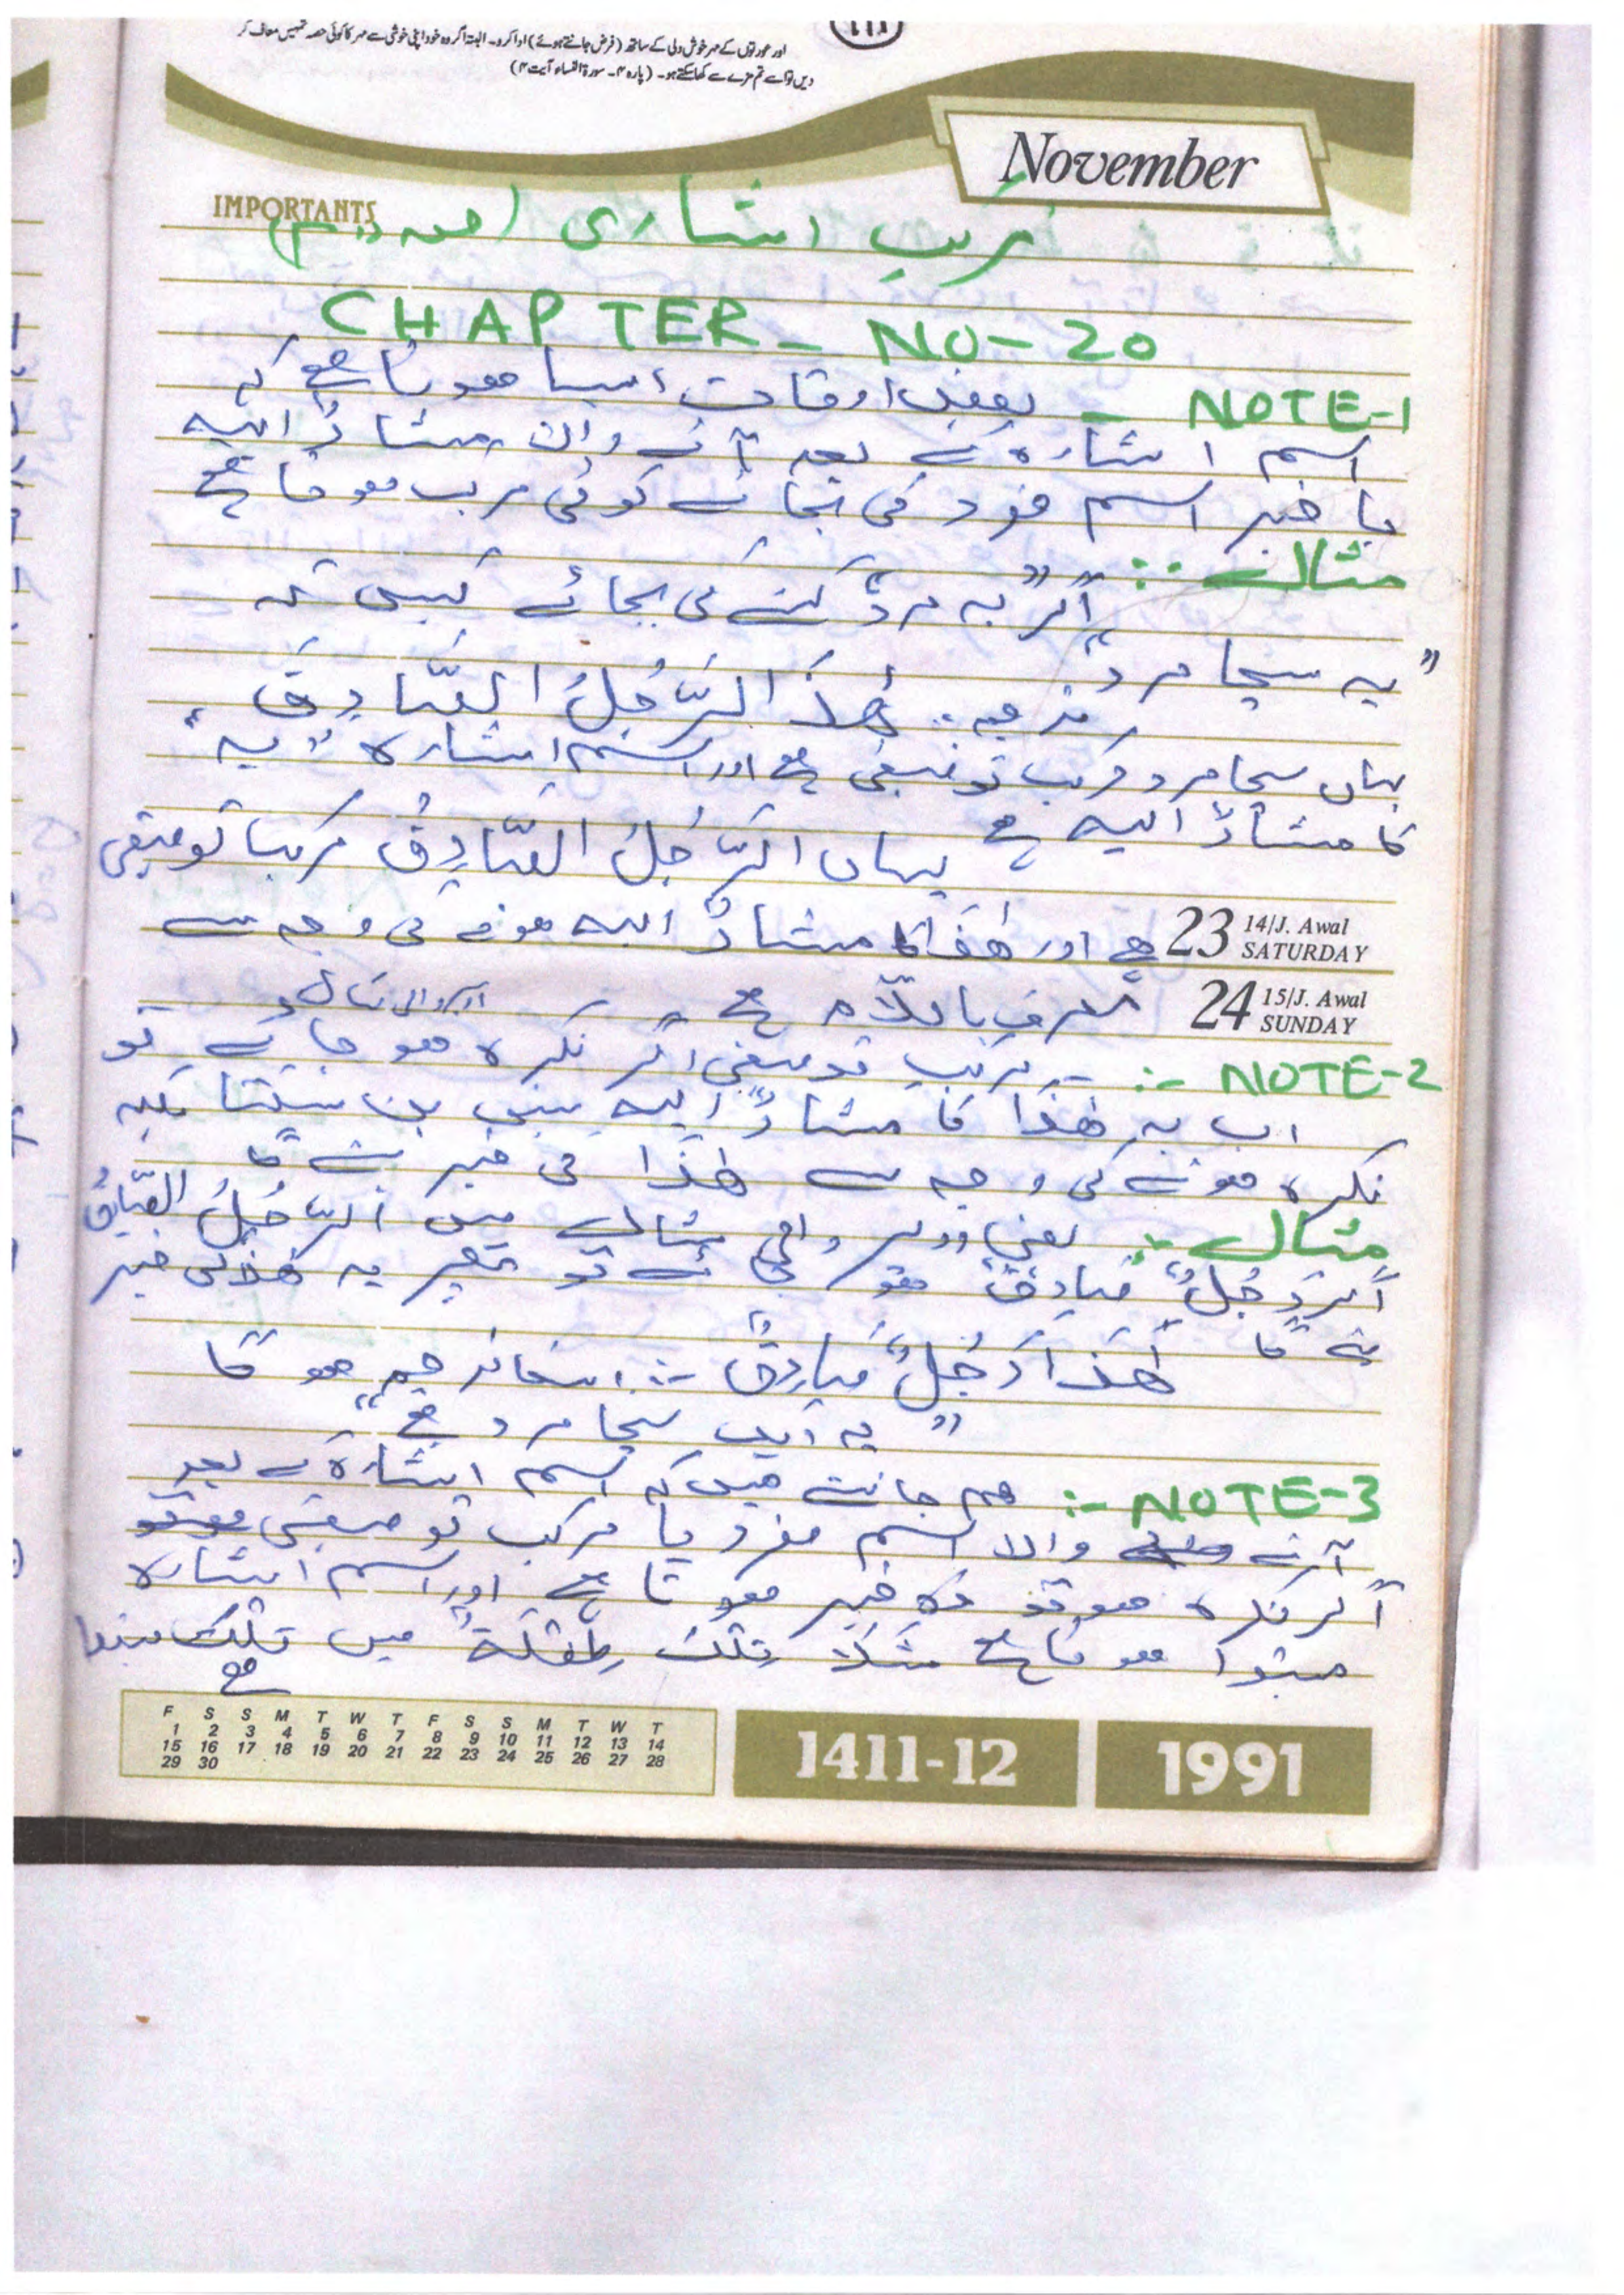 اور عورتوں کے مہر خوش دلی کے ساتھ (فرض جانتے ہوئے) ادا کرو۔ البتہ اگر وہ خود اپنی خوشی سے مہر کا کوئی حصہ تمہیں معاف کر
دیں تو اسے تم مزے سے کھا سکتے ہو۔ (پارہ ۴۔ سورۃ النساء آیت ۴)
November
IMPORTANTS
مرکب اشاری (حصہ دوم)
CHAPTER - NO - 20
NOTE-1 - بعض اوقات ایسا ہوتا ہے کہ
اسم اشارہ کے بعد آنے والا مشارٌ الیہ
یا خبر اسم مفرد کی بجائے کوئی مرکب ہوتا ہے
مثال :-
اگر "یہ مرد" کہنے کی بجائے کہیں کہ
"یہ سچا مرد"
ترجمہ :- هٰذَا الرَّجُلُ الصَّادِقُ
یہاں سچا مرد مرکب توصیفی ہے اور اسم اشارہ "یہ"
کا مشارٌ الیہ ہے یہاں الرَّجُلُ الصَّادِقُ مرکب توصیفی
23 14/J. Awal SATURDAY ہے اور هٰذَا کا مشارٌ الیہ ہونے کی وجہ سے
24 15/J. Awal SUNDAY معرف باللّام ہے
NOTE-2 :- مرکب توصیفی اگر نکرہ ہو جائے تو
اب یہ هٰذَا کا مشارٌ الیہ نہیں بن سکتا بلکہ
نکرہ ہونے کی وجہ سے هٰذَا کی خبر بنے گا
مثال :- یعنی اوپر والی مثال میں الرَّجُلُ الصَّادِقُ
اگر رَجُلٌ صَادِقٌ ہو جائے تو پھر یہ هٰذَا کی خبر
بنے گا هٰذَا رَجُلٌ صَادِقٌ :- اسکا ترجمہ ہو گا
"یہ ایک سچا مرد ہے"
NOTE-3 :- ہم جانتے ہیں کہ اسم اشارہ کے بعد
آنے والا اسم مفرد یا مرکب توصیفی
اگر نکرہ ہو تو وہ خبر ہوتا ہے اور اسم اشارہ
مبتدا ہوتا ہے مثلاً تِلْكَ طِفْلَةٌ میں تلك مبتدا
ہے
F S S M T W T F S S M T W T
1 2 3 4 5 6 7 8 9 10 11 12 13 14
15 16 17 18 19 20 21 22 23 24 25 26 27 28
29 30
1411-12
1991